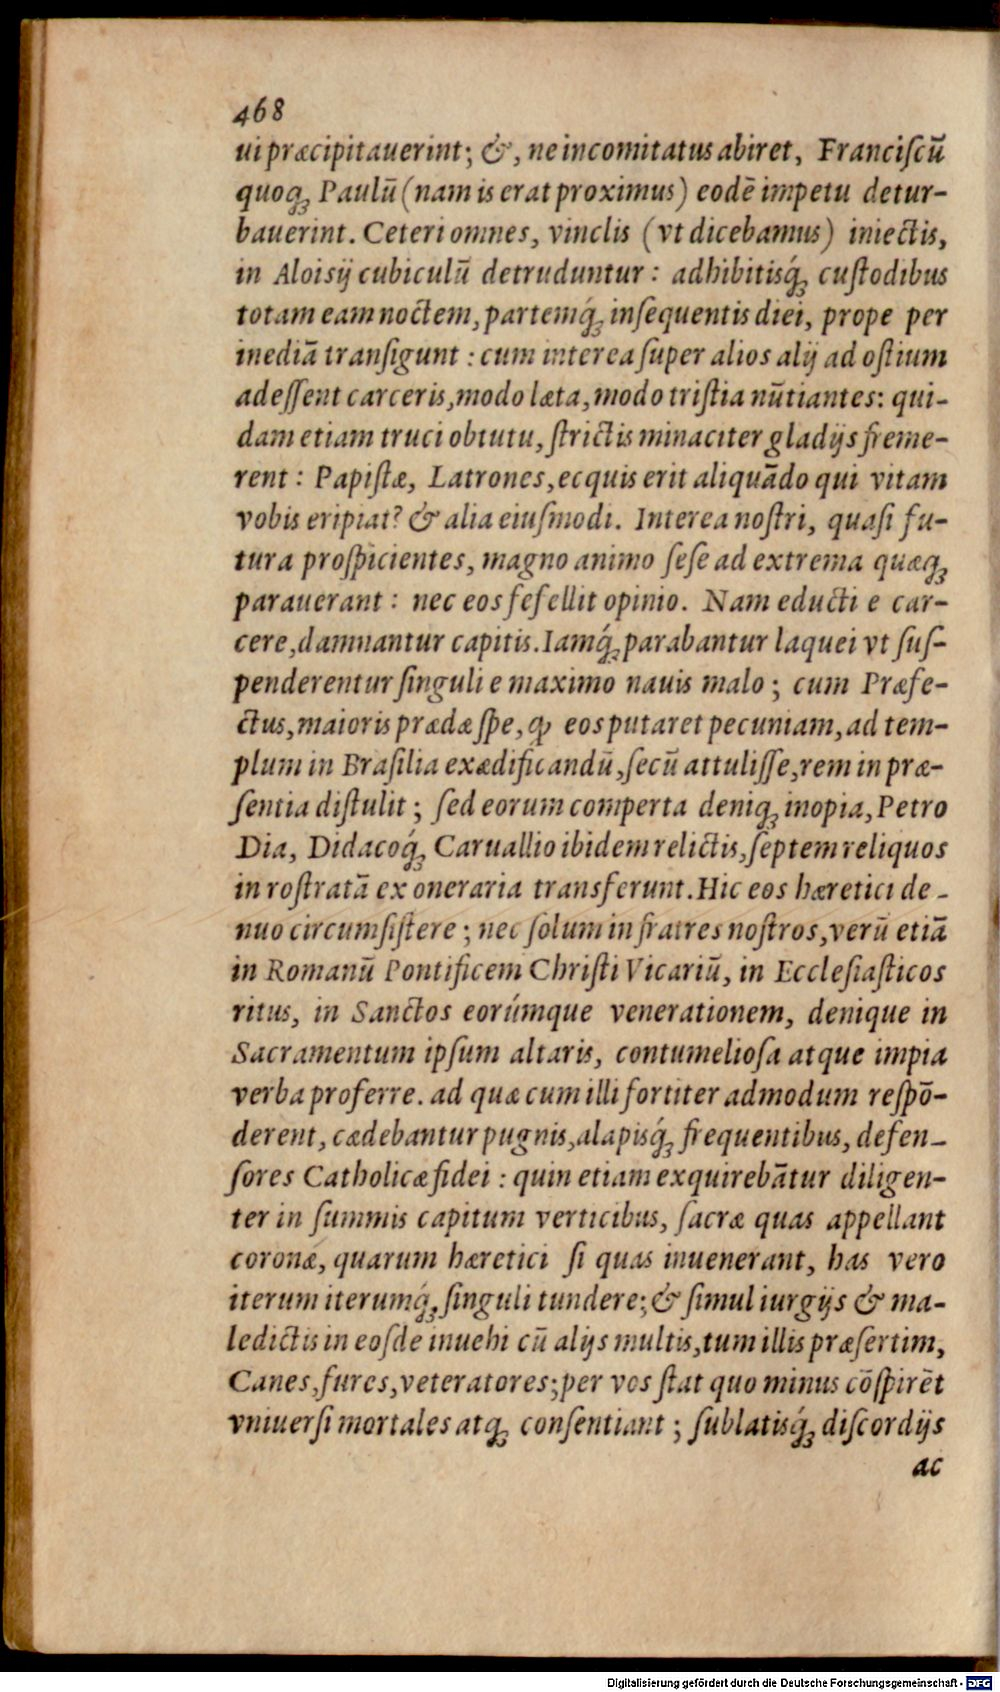 468
ui præcipitauerint; &, ne incomitatus abiret, Franciſcū
quoq; Paulū (nam is erat proximus) eodē impetu detur-
bauerint. Ceteri omnes, vinclis (vt dicebamus) iniectis,
in Aloisij cubiculū detruduntur: adhibitisq́; cuſtodibus
totam eam noctem, partemq́; inſequentis diei, prope per
inediā tranſigunt: cum interea ſuper alios alij ad oſtium
adeſſent carceris, modo læta, modo triſtia nūtiantes: qui-
dam etiam truci obtutu, ſtrictis minaciter gladijs freme-
rent: Papiſtæ, Latrones, ecquis erit aliquādo qui vitam
vobis eripiat? & alia eiuſmodi. Interea noſtri, quaſi fu-
tura proſpicientes, magno animo ſeſe ad extrema quæq;
parauerant: nec eos fefellit opinio. Nam educti e car-
cere, damnantur capitis. Iamq́; parabantur laquei vt ſuſ-
penderentur ſinguli e maximo nauis malo; cum Præfe-
ctus, maioris prædæ ſpe, ꝙ eos putaret pecuniam, ad tem-
plum in Braſilia exædificandū, ſecū attuliſſe, rem in præ-
ſentia diſtulit; ſed eorum comperta deniq; inopia, Petro
Dia, Didacoq́; Caruallio ibidem relictis, ſeptem reliquos
in roſtratā ex oneraria transferunt. Hic eos hæretici de-
nuo circumſiſtere; nec ſolum in fratres noſtros, verū etiā
in Romanū Pontificem Chriſti Vicariū, in Eccleſiaſticos
ritus, in Sanctos eorúmque venerationem, denique in
Sacramentum ipſum altaris, contumelioſa atque impia
verba proferre. ad quæ cum illi fortiter admodum reſpō-
derent, cædebantur pugnis, alapisq́; frequentibus, defen-
ſores Catholicæ fidei: quin etiam exquirebātur diligen-
ter in ſummis capitum verticibus, ſacræ quas appellant
coronæ, quarum hæretici ſi quas inuenerant, has vero
iterum iterumq́; ſinguli tundere; & ſimul iurgijs & ma-
ledictis in eoſde inuehi cū alijs multis, tum illis præſertim,
Canes, fures, veteratores; per vos ſtat quo minus cōſpirēt
vniuerſi mortales atq; conſentiant; ſublatisq́; diſcordijs
ac
Digitalisierung gefördert durch die Deutsche Forschungsgemeinschaft - DFG